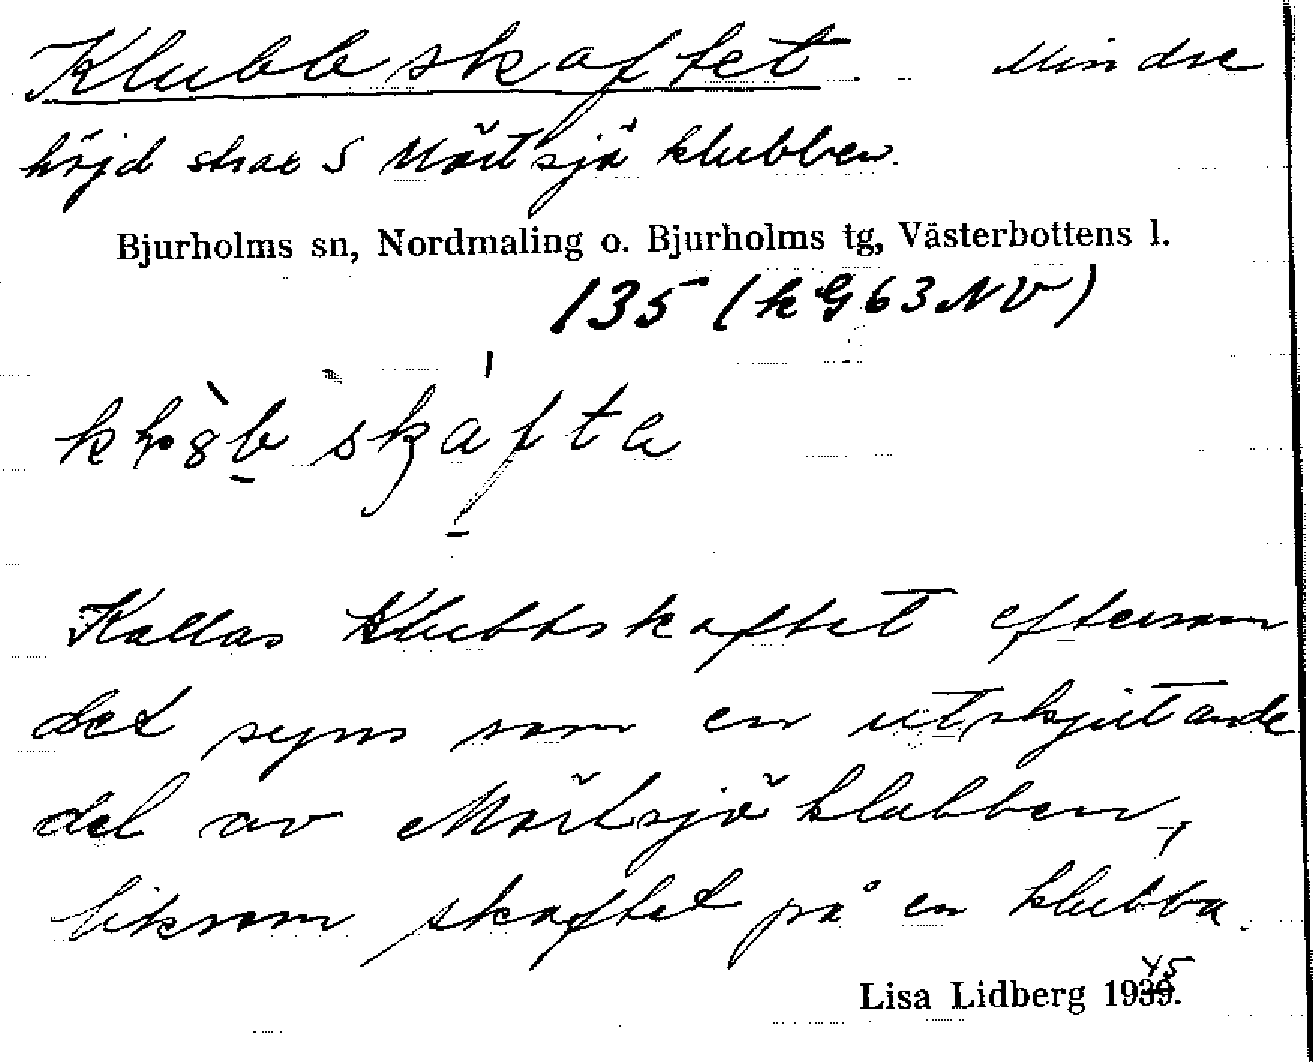 Klubbskaftet. Mindre
höjd strax S Mörtsjöklubben.
Bjurholms sn, Nordmaling o. Bjurholms tg, Västerbottens l.
135 (kG63NV)
Kallas Klubbskaftet eftersom
det syns som en utskjutande
del av Mörtsjöklubben,
liksom skaftet på en klubba.
45
Lisa Lidberg 1939.